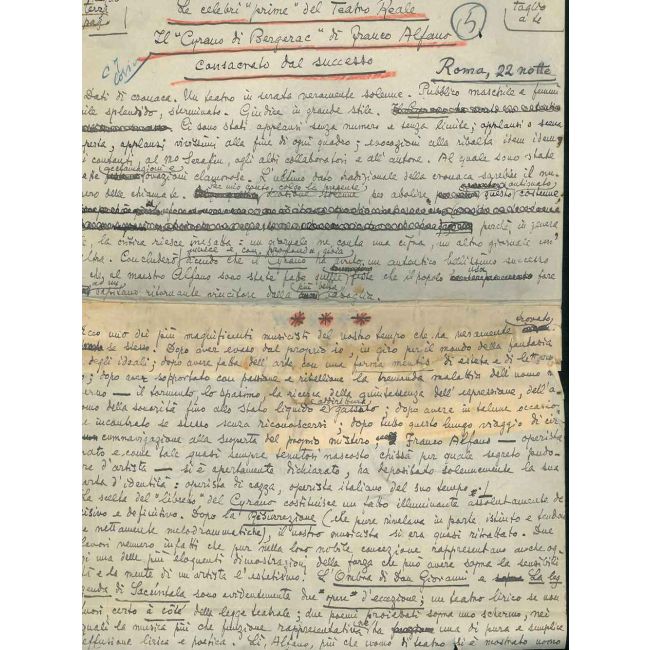 terzi
pag
Le celebri "prime" del Teatro Reale
Il "Cyrano di Bergerac" di Franco Alfano
5
taglio
a te
consacrato dal successo
Roma, 22 notte
Dati di cronaca. Un teatro in serata veramente solenne. Pubblico maschile e femmi
nile splendido, sterminato. Giudice in grande stile.
Ci sono stati applausi senza numero e senza limite; applausi a scena
aperta, applausi vivissimi alla fine di ogni quadro; evocazioni alla ribalta idem idem
i cantanti, al Mo Serafin, agli altri collaboratori e all'autore. Al quale sono state
acclamazioni e
ovazioni clamorose. L'ultimo dato tradizionale della cronaca sarebbe il nu
mero delle chiamate.
per mio conto, colgo la presente
per abolire questo costume
antiquato
perchè, in genere
la conta riesce inesatta: un giornale ne conta una cifra, un altro giornale un'
altra. Concluderò dicendo che il Cyrano ha avuto un autentico bellissimo successo
e che al maestro Alfano sono state fatte quelle feste che il popolo usa fare
ad un capitano ritornante vincitore dalla più dura battaglia.
* * *
Ecco uno dei più magnificenti musicisti del nostro tempo che ha veramente trovato
se stesso. Dopo aver evaso dal proprio io, in giro per il mondo della fantasia
degli ideali; dopo avere fatto dell'arte con una forma mentis di asceta e di lettera
; dopo aver sopportato con passione e ribellione la tremenda malattia dell'uomo mo
derno — il tormento, lo spasimo, la ricerca della quintessenza dell'espressione, dell'a
della sonorità fino allo stato liquido e gassoso; dopo avere in talune occasio
ni incontrato se stesso senza riconoscersi; dopo tutto questo lungo viaggio di cir
cumnavigazione alla scoperta del proprio mistero, Franco Alfano — operista
nato e come tale quasi sempre tenutosi nascosto chissà per quale segreto pudo
re d'artista — si è apertamente dichiarato, ha depositato solennemente la sua
carta d'identità: operista di razza, operista italiano del suo tempo!
La scelta del "libretto" del Cyrano costituisce un fatto illuminante assolutamente de
cisivo e definitivo. Dopo la Risurrezione (che pure rivelava in parte istinto e tenden
ze nettamente melodrammatiche), il nostro musicista si era quasi ritrattato. Due
lavori vennero infatti che pur nella loro nobile concezione rappresentano anche og
gi una delle più eloquenti dimostrazioni della forza che può avere sopra la sensibili
tà e la mente di un artista l'estetismo. L'Ombra di Don Giovanni e La leg
genda di Sacuntala sono evidentemente due "opere" d'eccezione; un teatro lirico se non
fuori, certo à côté della legge teatrale; due poemi proiettati sopra uno schermo, nei
quali la musica più che funzione rappresentativa ne ha una di pura e semplice
effusione lirica e poetica. Lì, Alfano, più che uomo di teatro si è mostrato uomo